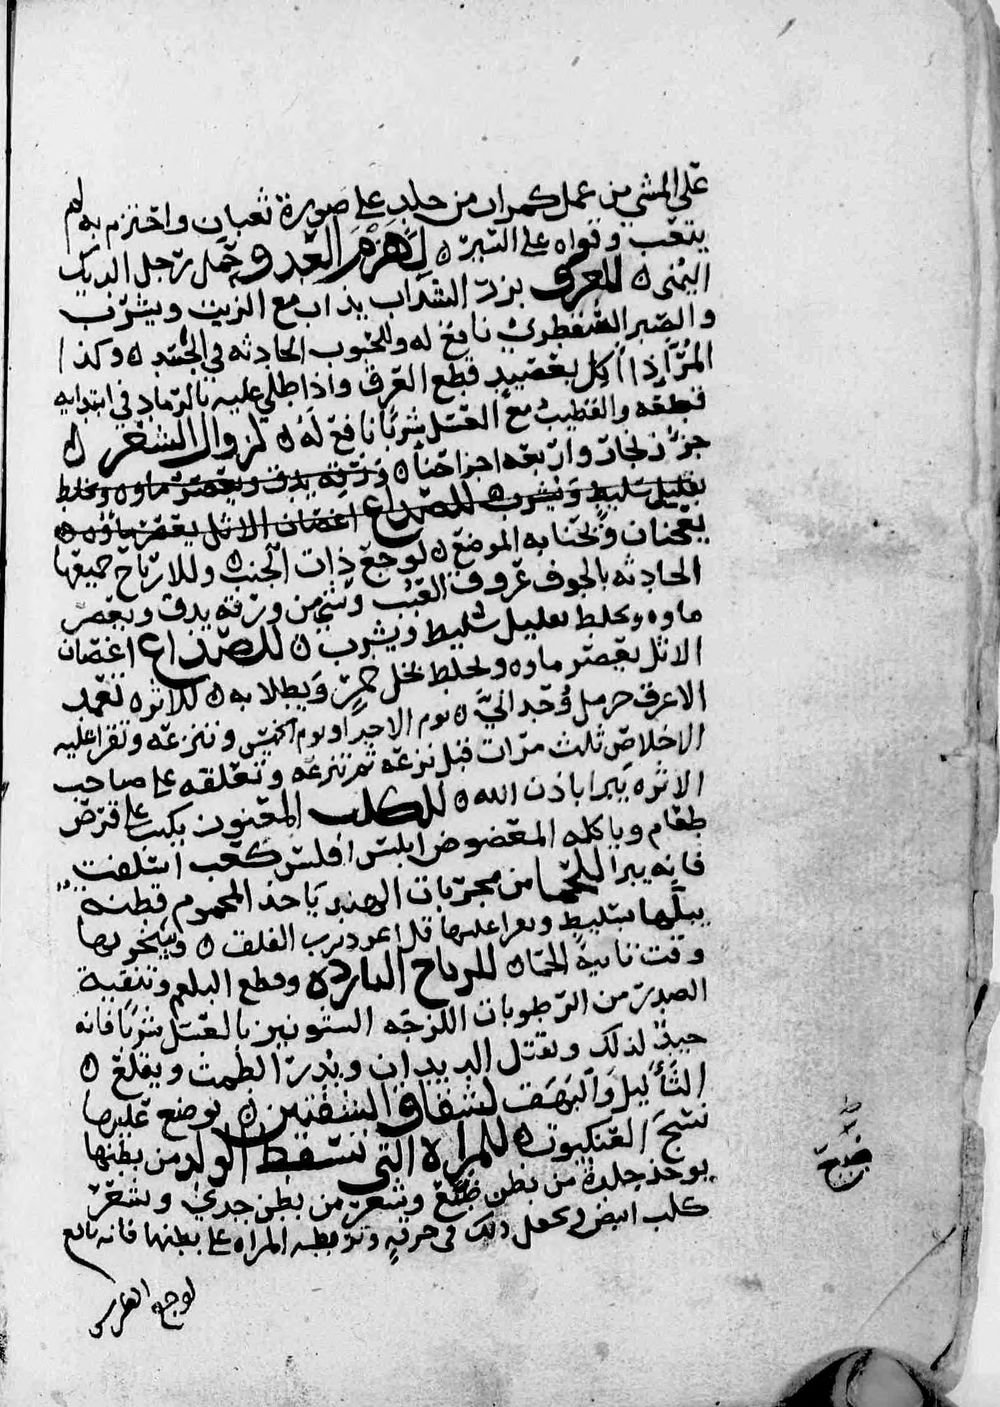 على المشي من عمل كمران من جلد على صورة ثعبان واحتزم به لم
يتعب وقواه على السير ه لهزم العدو تحمل رجل الديك
اليمنى ه للعرق بزر الشداب يذاب مع الزيت ويشرب
والصبر السقطري نافع له وللحبوب الحادثه في الجسد ه وكذا
المر اذا اكل بعصيد قطع العرق واذا طلي عليه بالرماد في ابتدايه
قطعه والقطيب مع العسل شربا نافع له ه لزوال الشعر ه
جزؤ زنجار واربعه اجزا حنا ه ورقه يدق ويعصر ماوه ويخلط
بقليل سليط ويشرب ه للصداع اغصان الاثل يعصر ماؤه ه
يعجنان ويحنا به الموضع ه لوجع ذات الجنب ه وللارياح جميعها
الحادثه بالجوف عروق العبب وشي من ورقه يدق ويعصر
ماوه ويخلط بقليل سليط ويشرب ه للصداع اغصان
الاثل يعصر ماوه ويخلط بخل خمر ويطلا به ه للاثره تعمد
الاعرق حرمل وحداني ه يوم الاحد او يوم الخميس وتنزعه وتقرا عليه
الاخلاص ثلاث مرات قبل نزعه ثم تنزعه وتعلقه على صاحب
الاثره يبرا باذن الله ه للكلب المعنون يكتب على قرص
طعام وياكله المعضوض ابلس افلس كعب استلفت
فانه يبرا للحما من مجربات الهند ياخذ المحموم قطنه
يبلها بسليط ويقرا عليها قل اعوذ برب الفلق ه ويتبخر بها
وقت نايبة الحما ه للرياح البارده وقطع البلغم وتنقية
الصدر من الرطوبات اللزجه الشونيز بالعسل شربا فانه
جيد لذلك ويقتل الديدان ويدر الطمث ويقلع ه
الثأليل والبهق لشقاق الشفتين ه يوضع عليها
نسج العنكبوت ه للمراه التي تسقط الولد من بطنها
يوخذ جلدة من بطن ضبع وشعر من بطن جدي وشعر
كلب ابيض ويجعل ذلك في خرقه وتربطه المراه على بطنها فانه نافع
لوجع
ضبع